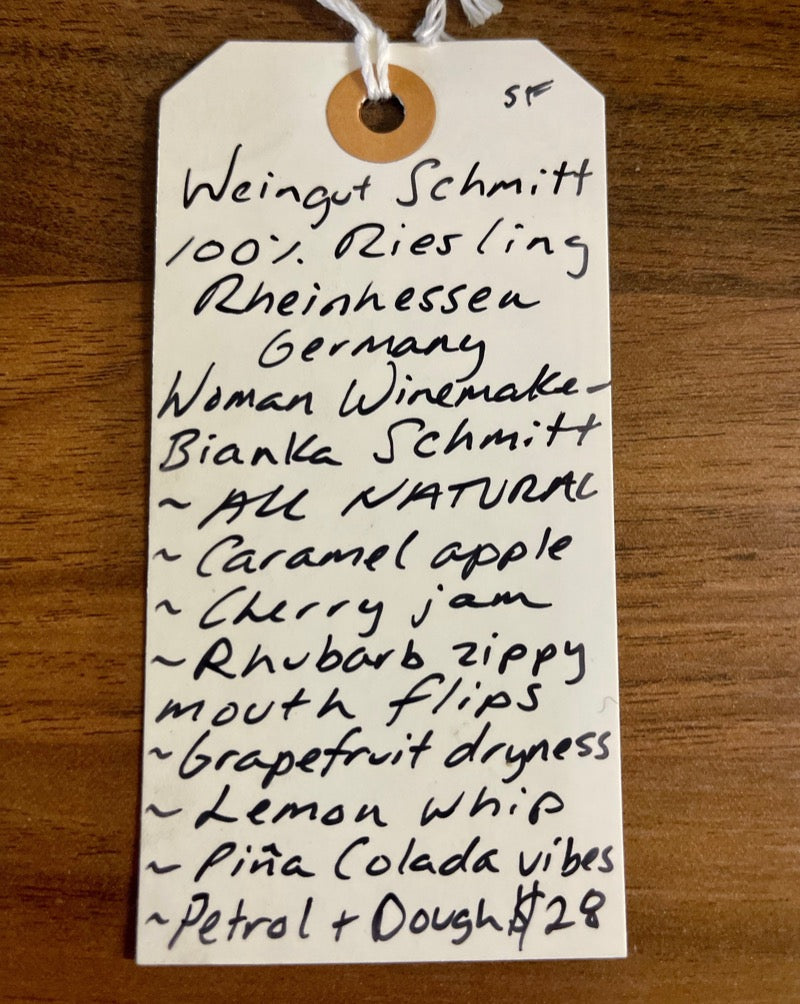 SF
Weingut Schmitt
100% Riesling
Rheinhessen
Germany
Woman Winemaker
Bianka Schmitt
~ All NATURAL
~ Caramel apple
~ Cherry jam
~ Rhubarb zippy
mouth flips
~ Grapefruit dryness
~ Lemon whip
~ Piña Colada vibes
~ Petrol + Dough $28